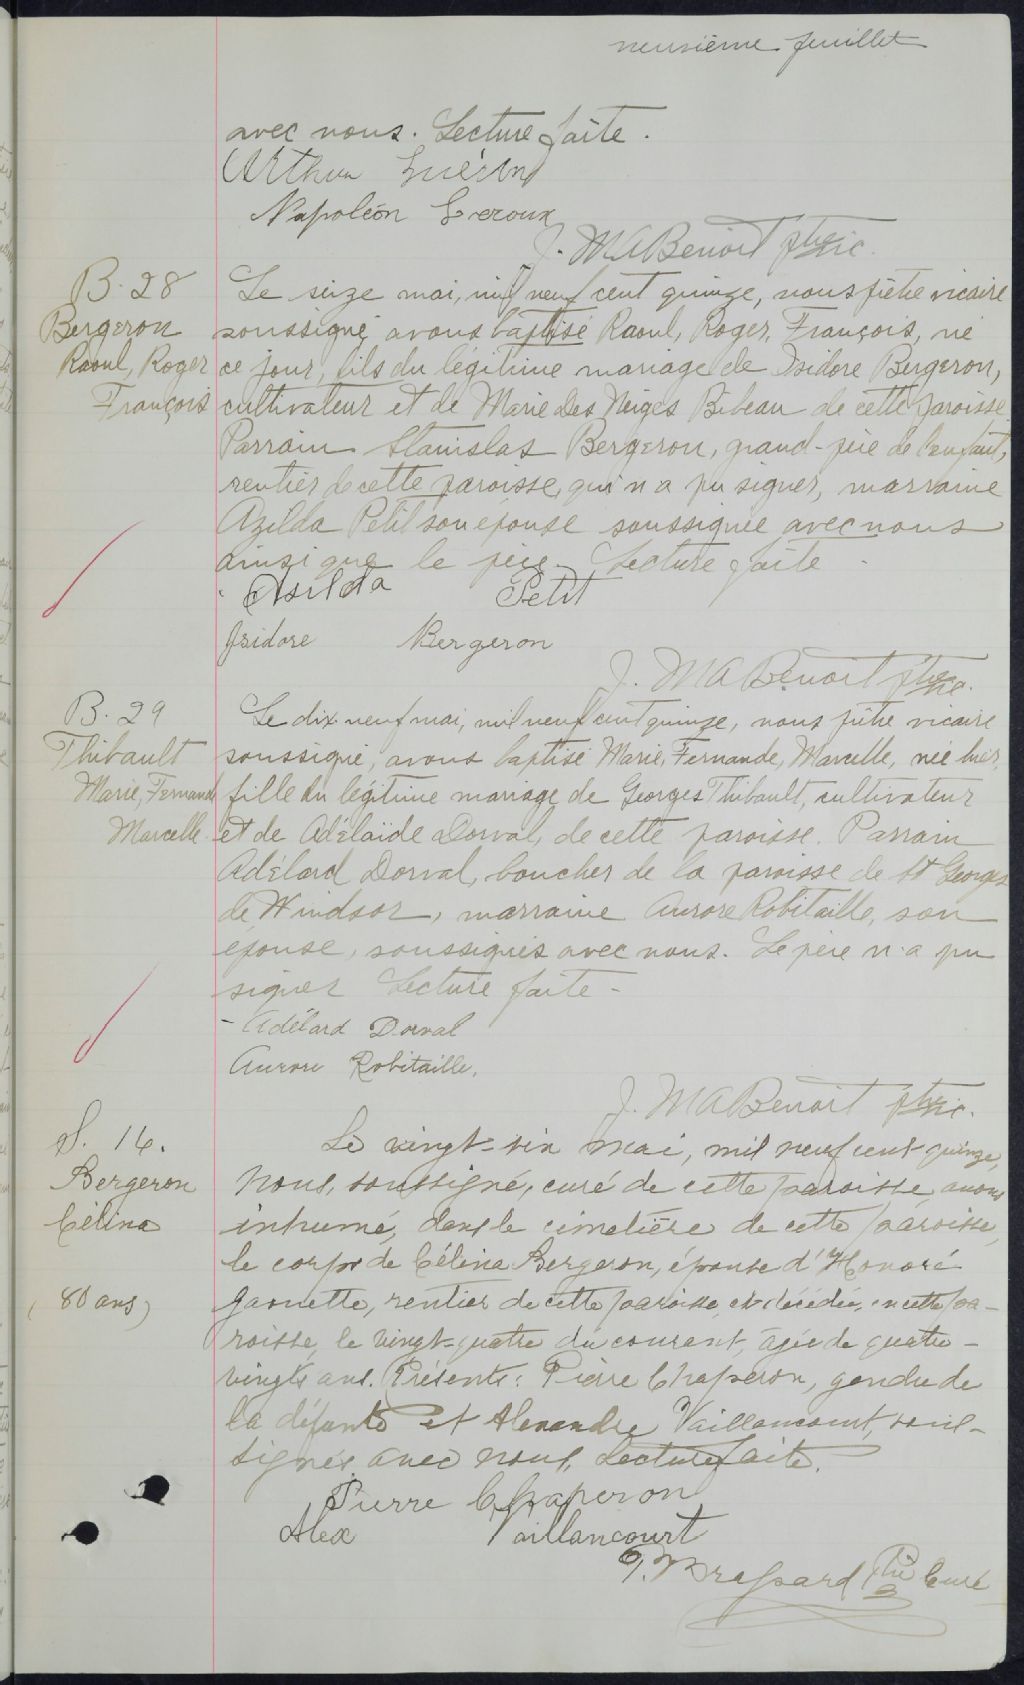 neuvième feuillet
avec nous. Lecture faite.
Arthur Guérin
Napoléon Leroux
J. M A Benoit ptre vic.
B. 28
Bergeron
Raoul, Roger
François
Le seize mai, mil neuf cent quinze, nous prêtre vicaire
soussigné, avons baptisé Raoul, Roger, François, né
ce jour, fils du légitime mariage de Isidore Bergeron,
cultivateur et de Marie des Neiges Bibeau de cette paroisse
Parrain Stanislas Bergeron, grand-père de l'enfant,
rentier de cette paroisse, qui n'a pu signer, marraine
Azilda Petit son épouse soussignée avec nous
ainsi que le père. Lecture faite.
Asilda Petit
Isidore Bergeron
J. M A Benoit ptre vic.
B. 29
Thibault
Marie, Fernand
Marcelle
Le dix-neuf mai, mil neuf cent quinze, nous prêtre vicaire
soussigné, avons baptisé Marie, Fernande, Marcelle, née hier,
fille du légitime mariage de Georges Thibault, cultivateur
et de Adélaïde Dorval, de cette paroisse. Parrain
Adélard Dorval, boucher de la paroisse de St Georges
de Windsor, marraine Aurore Robitaille, son
épouse, soussignés avec nous. Le père n'a pu
signer Lecture faite -
- Adélard Dorval
Aurore Robitaille.
J. M A Benoit ptre vic.
S. 14.
Bergeron
Célina
(80 ans)
Le vingt-six mai, mil neuf cent quinze,
Nous, soussigné, curé de cette paroisse avons
inhumé, dans le cimetière de cette paroisse,
le corps de Célina Bergeron, épouse d'Honoré
Gaouette, rentier de cette paroisse, et décédée, en cette pa-
roisse, le vingt-quatre du courant, âgée de quatre-
vingts ans. Présents: Pierre Chaperon, gendre de
la défunte et Alexandre Vaillancourt, sous-
signés avec nous. Lecture faite.
Pierre Chaperon
Alex Vaillancourt
Brassard Ptre Curé